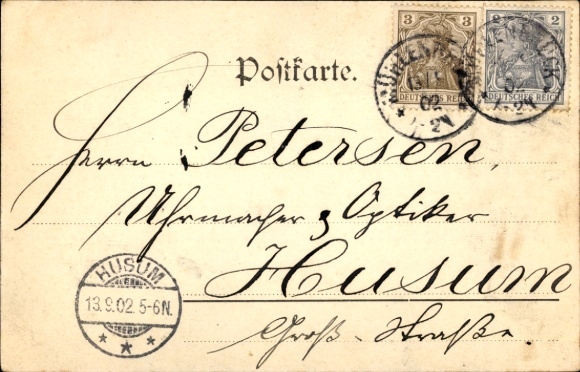 Postkarte.
3 3
DEUTSCHES REICH
2 2
DEUTSCHES REICH
02
Herrn Petersen,
Uhrmacher & Optiker
Husum
Groß-Straße.
HUSUM
13.9.02.5-6N.